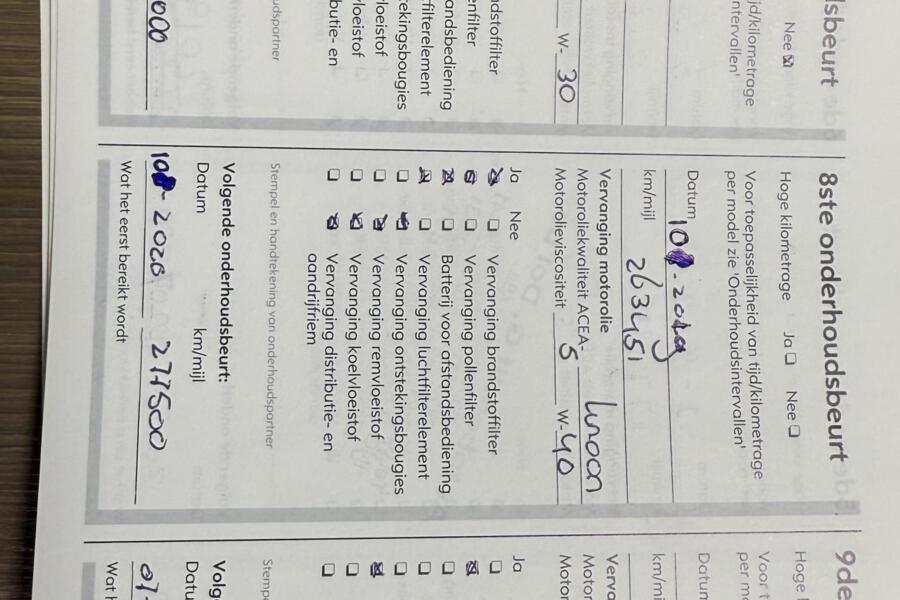 sbeurt
Nee ☒
jd/kilometrage
ntervallen'
W- 30
ndstoffilter
enfilter
andsbediening
filterelement
ekingsbougies
loeistof
loeistof
butie- en
udspartner
000
8ste onderhoudsbeurt
Hoge kilometrage Ja ☐ Nee ☐
Voor toepasselijkheid van tijd/kilometrage
per model zie 'Onderhoudsintervallen'
Datum
km/mijl 263451
Vervanging motorolie
Motoroliekwaliteit ACEA-
Motorolieviscositeit 5 W- 40
Ja Nee
☒ ☐ Vervanging brandstoffilter
☒ ☐ Vervanging pollenfilter
☒ ☐ Batterij voor afstandsbediening
☒ ☐ Vervanging luchtfilterelement
☐ ☒ Vervanging ontstekingsbougies
☐ ☒ Vervanging remvloeistof
☐ ☒ Vervanging koelvloeistof
☐ ☒ Vervanging distributie- en
aandrijfriem
Stempel en handtekening van onderhoudspartner
Volgende onderhoudsbeurt:
Datum km/mijl
Wat het eerst bereikt wordt
9de
Hoge
Voor t
per mo
Datum
km/mi
Verva
Motor
Motor
Ja
☐
☒
☐
☐
☐
☒
☐
☐
Stempe
Volg
Datu
07-
Wat h